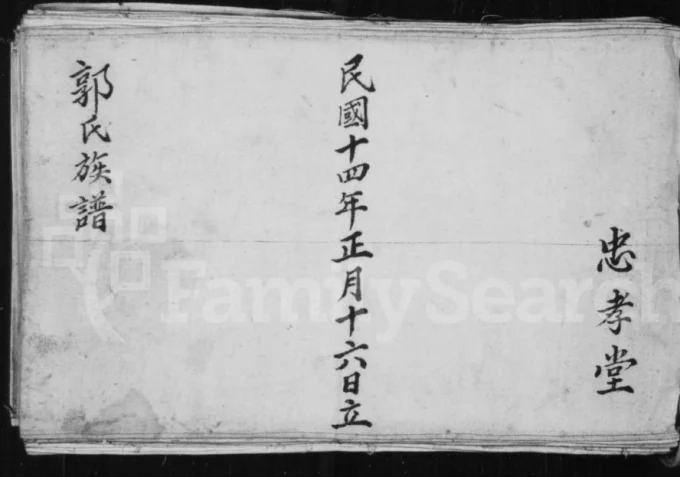 忠孝堂
民國十四年正月十六日立
郭氏族譜
FamilySearch